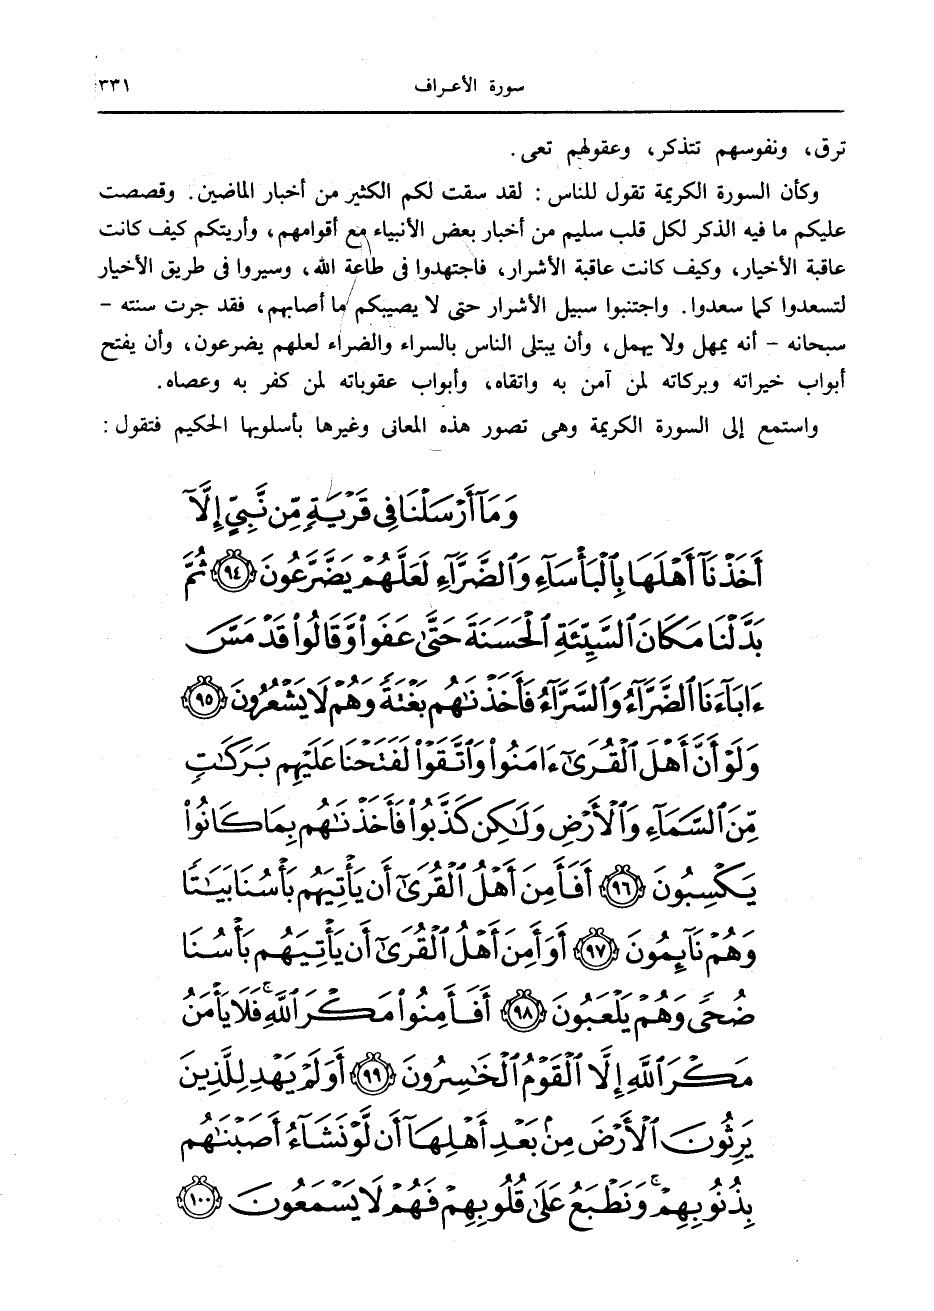 سورة الأعراف ٣٣١
ترق، ونفوسهم تتذكر، وعقولهم تعى.
وكأن السورة الكريمة تقول للناس: لقد سقت لكم الكثير من أخبار الماضين. وقصصت
عليكم ما فيه الذكر لكل قلب سليم من أخبار بعض الأنبياء مع أقوامهم، وأريتكم كيف كانت
عاقبة الأخيار، وكيف كانت عاقبة الأشرار، فاجتهدوا فى طاعة الله، وسيروا فى طريق الأخيار
لتسعدوا كما سعدوا. واجتنبوا سبيل الأشرار حتى لا يصيبكم ما أصابهم، فقد جرت سنته –
سبحانه – أنه يمهل ولا يهمل، وأن يبتلى الناس بالسراء والضراء لعلهم يضرعون، وأن يفتح
أبواب خيراته وبركاته لمن آمن به واتقاه، وأبواب عقوباته لمن كفر به وعصاه.
واستمع إلى السورة الكريمة وهى تصور هذه المعانى وغيرها بأسلوبها الحكيم فتقول:
وَمَآ أَرْسَلْنَا فِى قَرْيَةٍ مِّن نَّبِىٍّ إِلَّآ
أَخَذْنَآ أَهْلَهَا بِٱلْبَأْسَآءِ وَٱلضَّرَّآءِ لَعَلَّهُمْ يَضَّرَّعُونَ ﴿٩٤﴾ ثُمَّ
بَدَّلْنَا مَكَانَ ٱلسَّيِّئَةِ ٱلْحَسَنَةَ حَتَّىٰ عَفَوا۟ وَّقَالُوا۟ قَدْ مَسَّ
ءَابَآءَنَا ٱلضَّرَّآءُ وَٱلسَّرَّآءُ فَأَخَذْنَٰهُم بَغْتَةً وَهُمْ لَا يَشْعُرُونَ ﴿٩٥﴾
وَلَوْ أَنَّ أَهْلَ ٱلْقُرَىٰٓ ءَامَنُوا۟ وَٱتَّقَوْا۟ لَفَتَحْنَا عَلَيْهِم بَرَكَٰتٍ
مِّنَ ٱلسَّمَآءِ وَٱلْأَرْضِ وَلَٰكِن كَذَّبُوا۟ فَأَخَذْنَٰهُم بِمَا كَانُوا۟
يَكْسِبُونَ ﴿٩٦﴾ أَفَأَمِنَ أَهْلُ ٱلْقُرَىٰٓ أَن يَأْتِيَهُم بَأْسُنَا بَيَٰتًا
وَهُمْ نَآئِمُونَ ﴿٩٧﴾ أَوَأَمِنَ أَهْلُ ٱلْقُرَىٰٓ أَن يَأْتِيَهُم بَأْسُنَا
ضُحًى وَهُمْ يَلْعَبُونَ ﴿٩٨﴾ أَفَأَمِنُوا۟ مَكْرَ ٱللَّهِ ۚ فَلَا يَأْمَنُ
مَكْرَ ٱللَّهِ إِلَّا ٱلْقَوْمُ ٱلْخَٰسِرُونَ ﴿٩٩﴾ أَوَلَمْ يَهْدِ لِلَّذِينَ
يَرِثُونَ ٱلْأَرْضَ مِنۢ بَعْدِ أَهْلِهَآ أَن لَّوْ نَشَآءُ أَصَبْنَٰهُم
بِذُنُوبِهِمْ ۚ وَنَطْبَعُ عَلَىٰ قُلُوبِهِمْ فَهُمْ لَا يَسْمَعُونَ ﴿١٠٠﴾